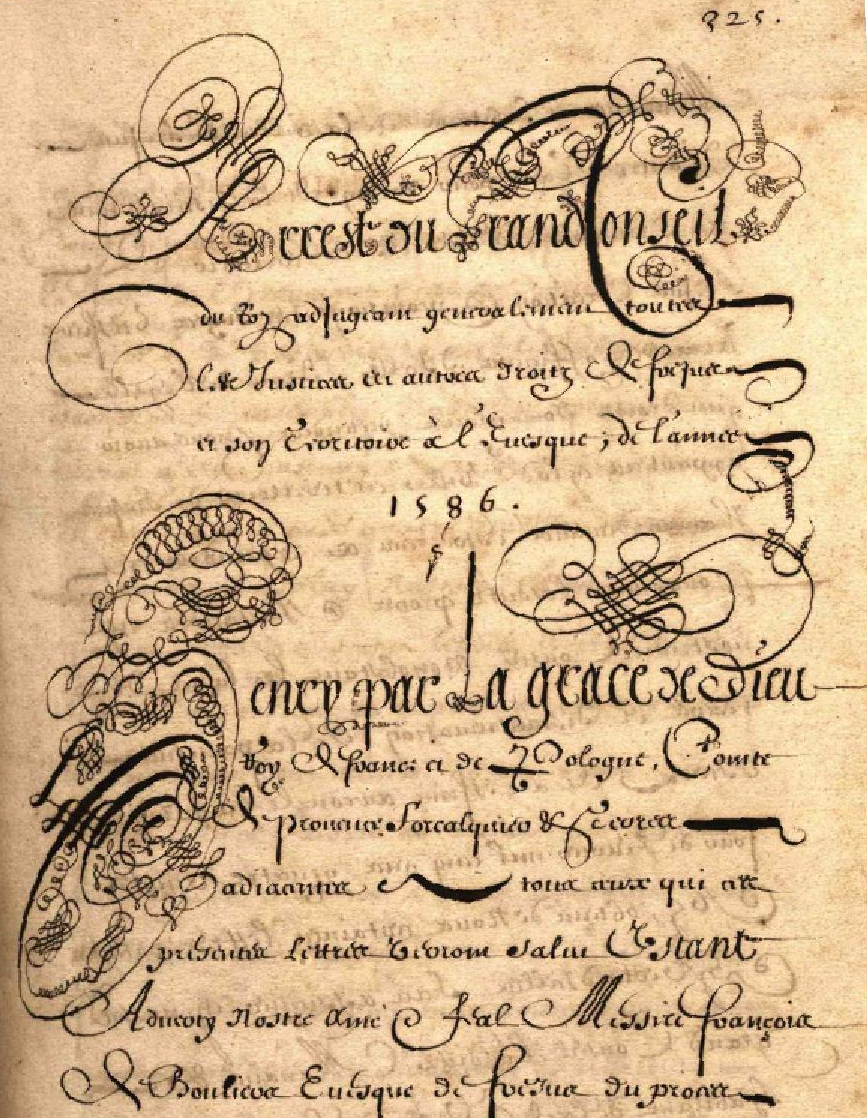 325.
Arrest du Grand Conseil
du Roy adjugeant generalement toutes
les Justices et autres droitz de frejus
et son Territoire à l'Euesque, de l'année
1586.
Henry par La grace de Dieu
Roy de france et de Pologne, Comte
de prouence forcalquier & Terres
adiacentes tous ceux qui ces
presentes lettres verront salut Estant
Aduerty Nostre amé & feal Messire françois
de Bouliers Euesque de frejus du proces